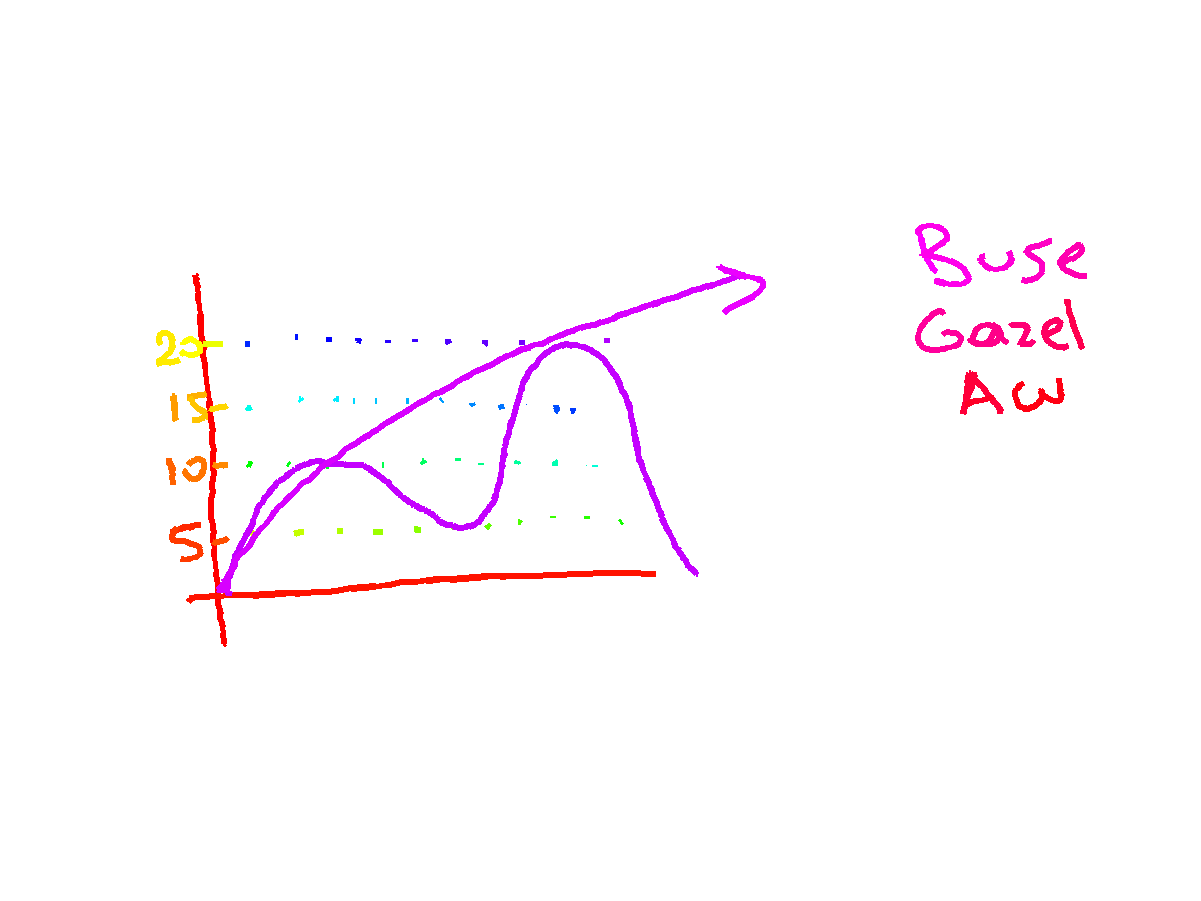 20
15
10
5
Buse
Gazel
Aw